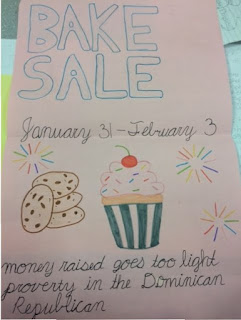 BAKE
SALE
January 31 - February 3
money raised goes too light
proverty in the Dominican
Republican